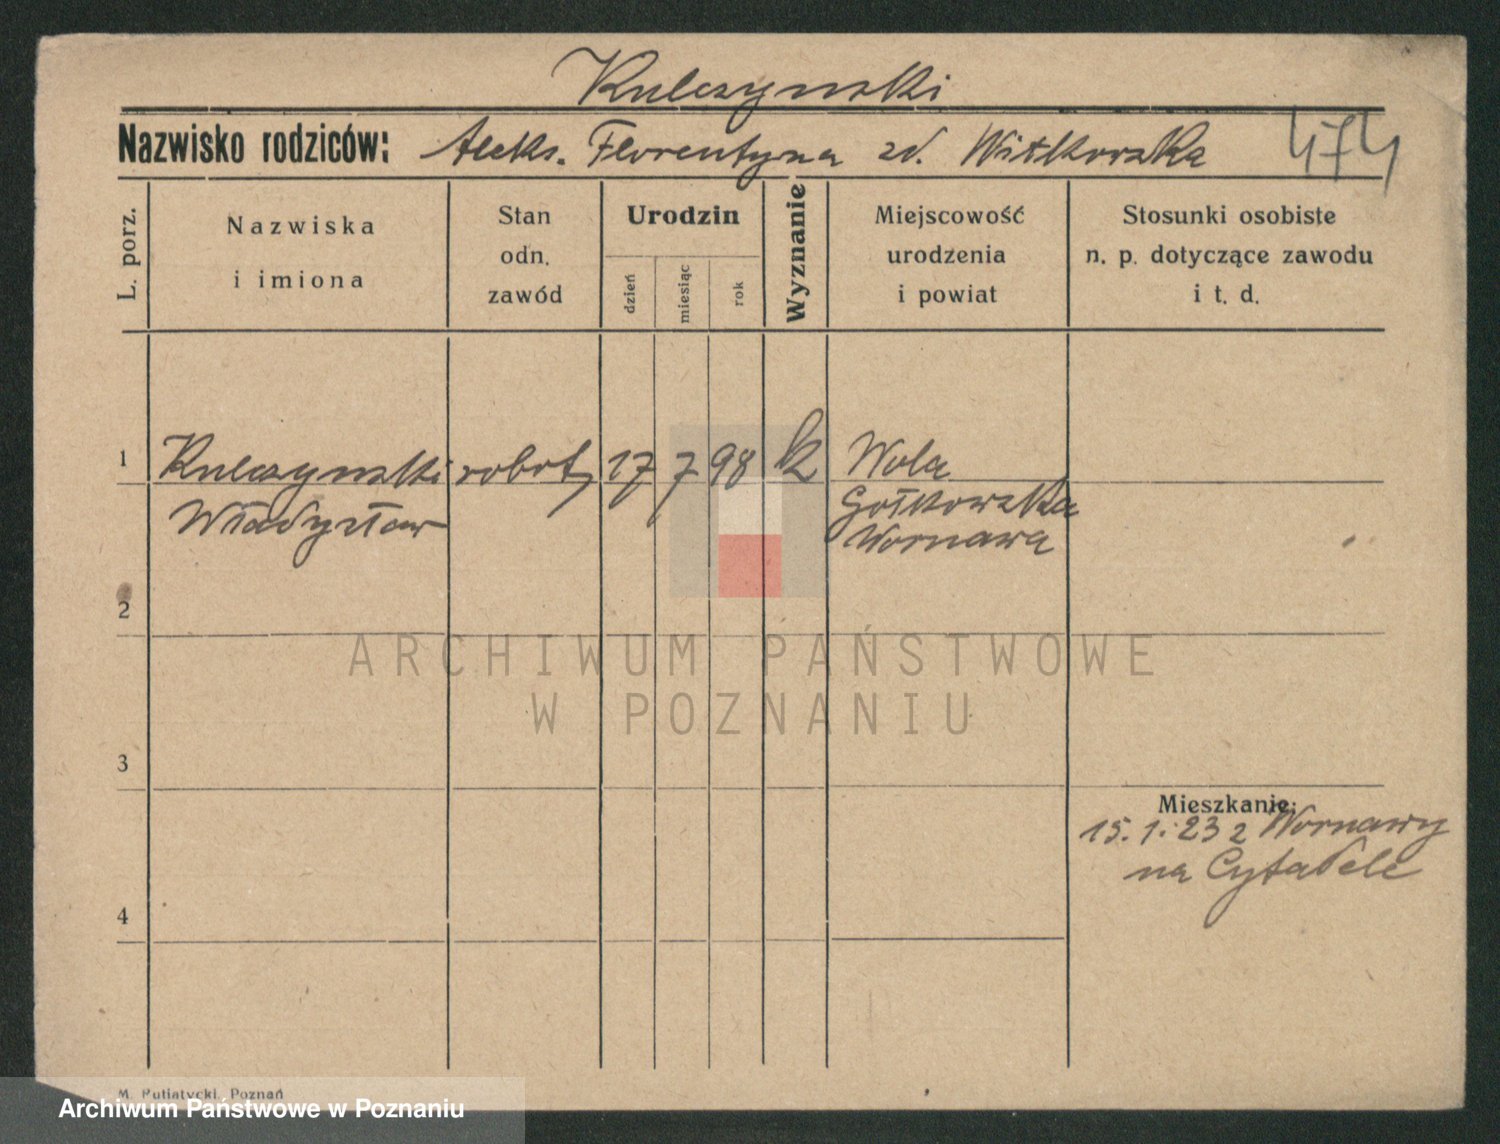 Kulczynski
Nazwisko rodziców: Aleks. Florentyna zd. Witkowska 474
L. porz.
Nazwiska
i imiona
Stan
odn.
zawód
Urodzin
dzień
miesiąc
rok
Wyznanie
Miejscowość
urodzenia
i powiat
Stosunki osobiste
n. p. dotyczące zawodu
i t. d.
1 Kulczynski robot, 17 7 98 k Wola
Władysław Gołkowska
Warszawa
2
ARCHIWUM PAŃSTWOWE
W POZNANIU
3
Mieszkanie:
15.1.23 z Warszawy
na Cytadele
4
M. Putiatycki, Poznań
Archiwum Państwowe w Poznaniu